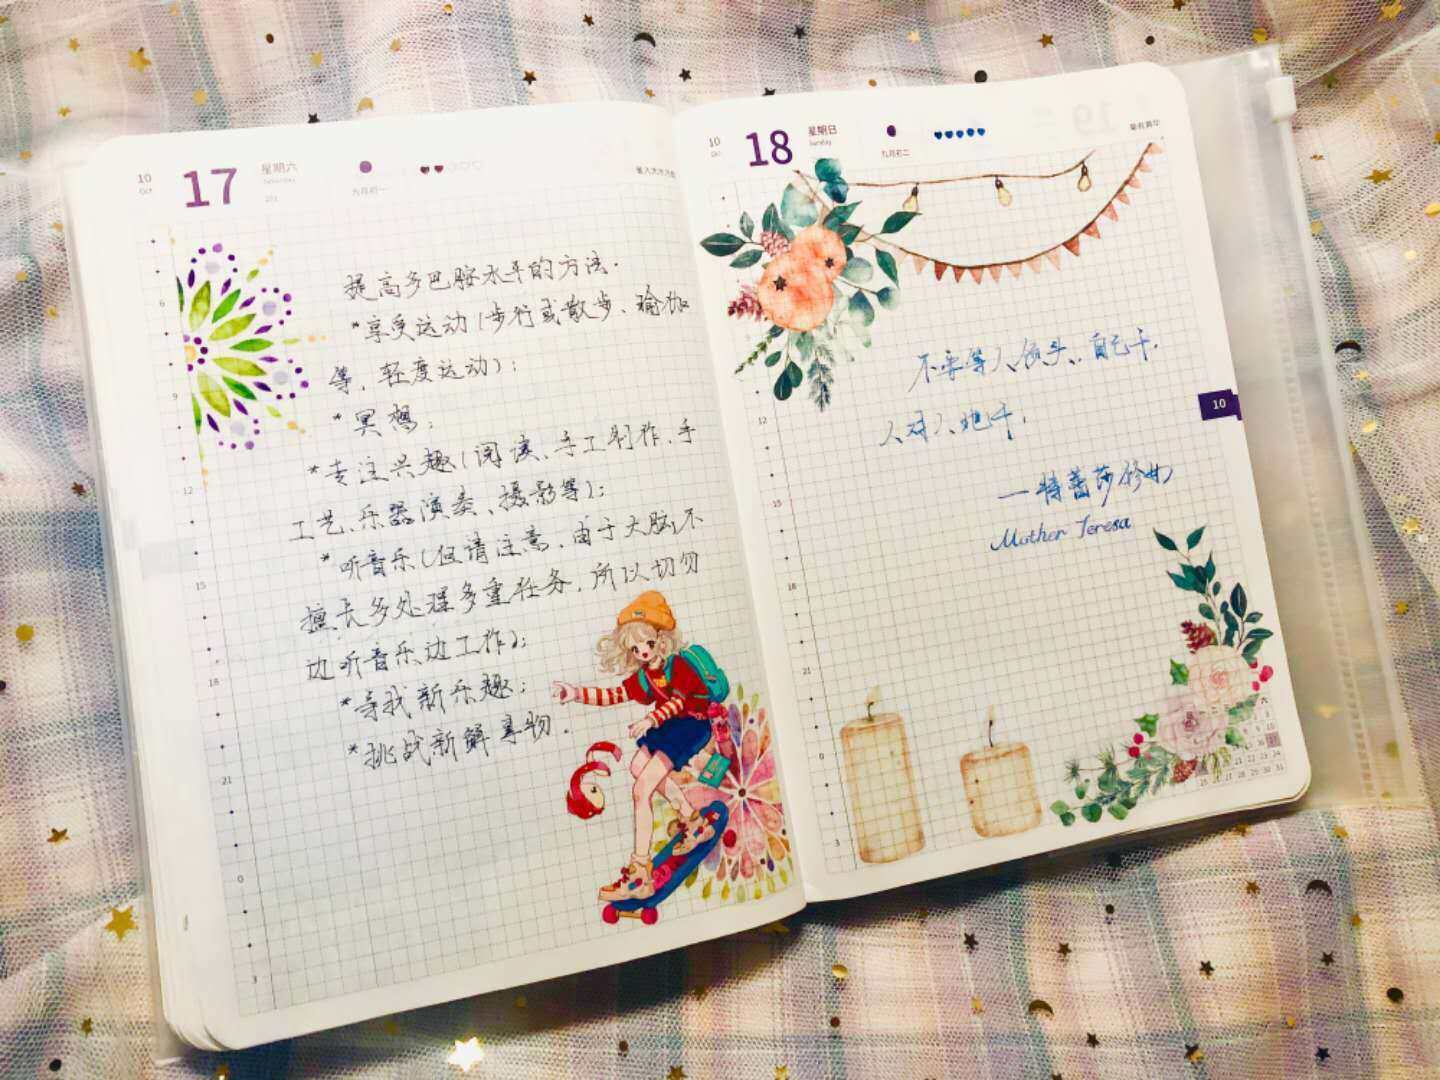 10
Oct
17
星期六
Saturday
九月初一
6
9
12
15
18
21
0
3
提高多巴胺水平的方法.
*享受运动(步行或散步、瑜伽
等,轻度运动);
*冥想;
*专注兴趣(阅读、手工制作、手
工艺、乐器演奏、摄影等);
*听音乐(但请注意,由于大脑不
擅长多处理多重任务,所以切勿
边听音乐边工作);
*寻找新乐趣;
*挑战新鲜事物.
10
Oct
18
星期日
Sunday
九月初二
12
15
18
21
0
3
不要等人领头,自己干.
人对人地干,
—特蕾莎修女
Mother Teresa
10